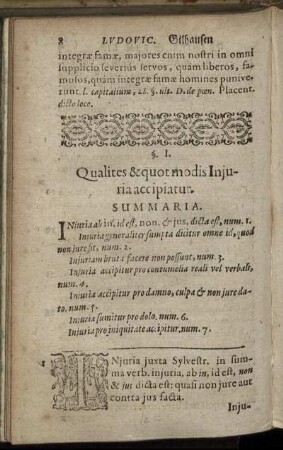 8 LVDOVIC. Gilhausen
integræ famæ, majores enim nostri in omni
supplicio severius servos, quàm liberos, fa-
mosos, quàm integræ famæ homines punive-
runt. l. capitalium, 28. §. ult. D. de pœn. Placent.
dicto loco.
§. I.
Qualites & quot modis Inju-
ria accipiatur.
SUMMARIA.
INjuria ab in, id est, non, & jus, dicta est, num. 1.
Injuria generaliter sumpta dicitur omne id, quod
non jure fit, num. 2.
Injuriam bruta facere non possunt, num. 3.
Injuria accipitur pro contumelia reali vel verbali,
num. 4.
Injuria accipitur pro damno, culpa & non jure da-
to. num. 5.
Injuria sumitur pro dolo. num. 6.
Injuria pro iniquitate accipitur, num. 7.
1 INjuria juxta Sylvestr. in sum-
ma verb. injuria, ab in, id est, non
& jus dicta est: quasi non jure aut
contra jus facta.
Inju-